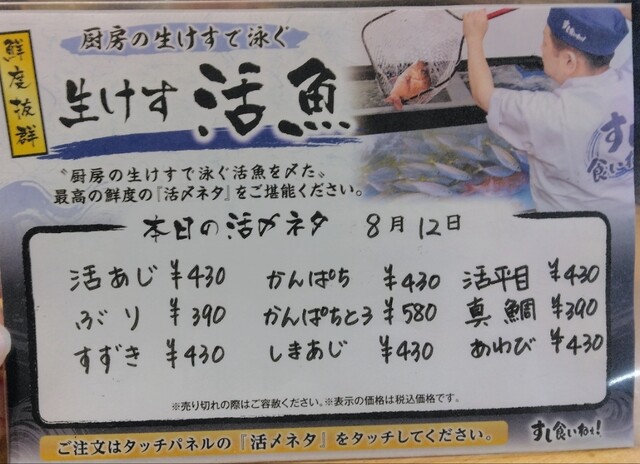 鮮度抜群
厨房の生けすで泳ぐ
生けす 活魚
すし食いねぇ!
〝厨房の生けすで泳ぐ活魚を〆た〟
最高の鮮度の『活〆ネタ』をご堪能ください。
本日の活〆ネタ 8月12日
活あじ ¥430 かんぱち ¥430 活平目 ¥430
ぶり ¥390 かんぱちとろ ¥580 真鯛 ¥390
すずき ¥430 しまあじ ¥430 あわび ¥430
※売り切れの際はご容赦ください。※表示の価格は税込価格です。
ご注文はタッチパネルの『活〆ネタ』をタッチしてください。
すし食いねぇ!